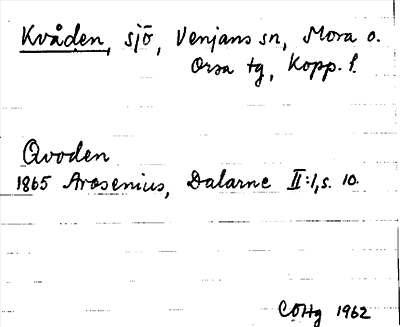 Kvåden, sjö, Venjans sn, Mora o.
Orsa tg, Kopp. l.
Qvoden
1865 Arosenius, Dalarne II:1, s. 10.
COHg 1962